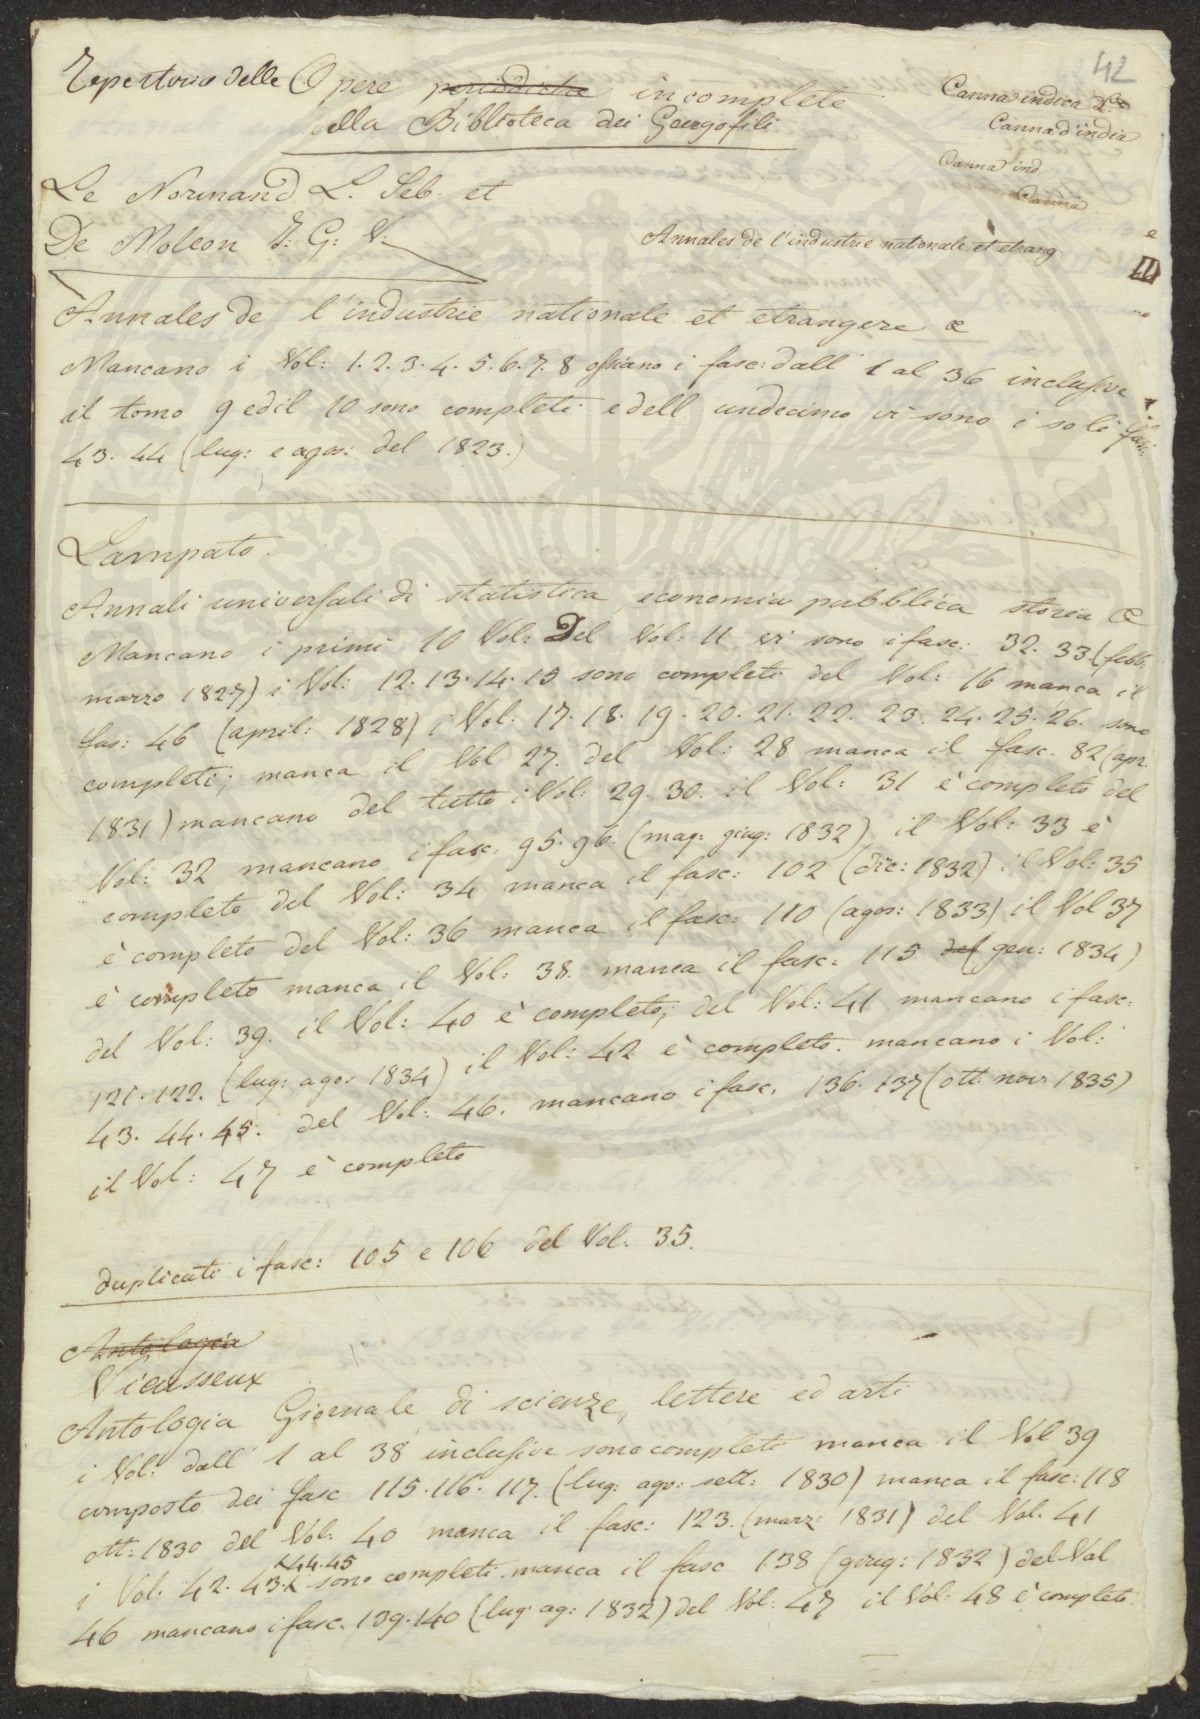 42
Repertorio delle Opere periodiche incomplete
della Biblioteca dei Georgofili
Canna indica L
Canna d'india
Canna ind
Canna
Le Normand L. Seb. et
De Moleon J: G: V.
Annales de l'industrie nationale et etrang
Annales de l'industrie nationale et etrangere &
Mancano i Vol: 1. 2. 3. 4. 5. 6. 7. 8 ossiano i fasc: dall' 1 al 36 inclusive
il tomo 9 ed il 10 sono completi e dell undecimo vi sono i soli fasc:
43. 44 (lug: e agos: del 1823.)
Lampato.
Annali universali di statistica, economia pubblica storia &
Mancano i primi 10 Vol: Del Vol: 11 vi sono i fasc: 32. 33 (febb.
marzo 1827) i Vol: 12. 13. 14. 15 sono completi del Vol: 16 manca il
fas: 46 (april: 1828) i Vol: 17. 18. 19. 20. 21. 22. 23. 24. 25. 26. sono
completi; manca il Vol 27. del Vol: 28 manca il fasc. 82 (apr.
1831) mancano del tutto i Vol: 29. 30. il Vol: 31 è completo del
Vol: 32 mancano i fasc. 95. 96. (mag: giug: 1832) il Vol: 33 è
completo del Vol: 34 manca il fasc: 102 (dic: 1832) il Vol: 35
è completo del Vol: 36 manca il fasc: 110 (agos: 1833) il Vol 37
è completo manca il Vol: 38. manca il fasc: 115 del (gen: 1834)
del Vol: 39. il Vol: 40 è completo; del Vol: 41 mancano i fasc:
121. 122. (lug: agos 1834) il Vol: 42 è completo. mancano i Vol:
43. 44. 45. del Vol: 46. mancano i fasc. 136. 137 (ott: nov: 1835)
il Vol: 47 è completo
duplicati i fasc: 105 e 106 del Vol. 35.
Antologia
Vieusseux
Antologia Giornale di scienze, lettere ed arti
i Vol: dall' 1 al 38 inclusive sono completi manca il Vol 39
composto dei fasc 115. 116. 117. (lug: ago: sett: 1830) manca il fasc: 118
ott: 1830 del Vol: 40 manca il fasc: 123. (marz: 1831) del Vol. 41
44. 45
i Vol. 42. 43. sono completi manca il fasc 138 (giug: 1832) del Vol
46 mancano i fasc. 139. 140 (lug. ag: 1832) del Vol: 47 il Vol: 48 è completo